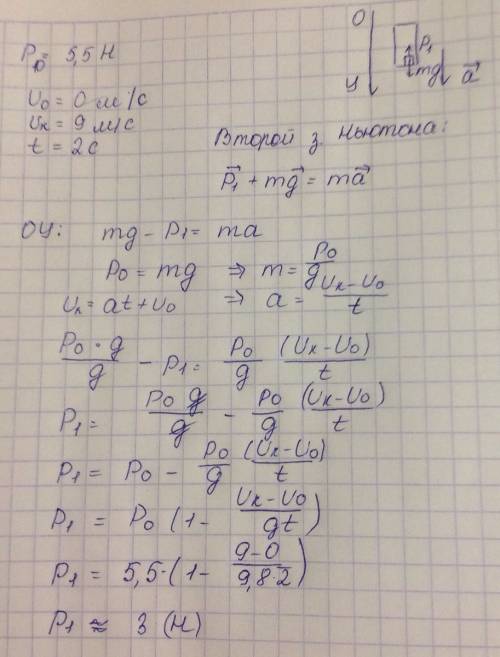 P₀ = 5,5 Н
υ₀ = 0 м/с
υк = 9 м/с
t = 2 с
О
У
P₁
mg
a⃗
Второй з. Ньютона:
P⃗₁ + mg⃗ = ma⃗
ОУ: mg - P₁ = ma
P₀ = mg ⇒ m = P₀/g
υк = at + υ₀ ⇒ a = (υк - υ₀)/t
P₀·g/g - P₁ = P₀/g (υк - υ₀)/t
P₁ = P₀g/g - P₀/g (υк - υ₀)/t
P₁ = P₀ - P₀/g (υк - υ₀)/t
P₁ = P₀ (1 - (υк - υ₀)/gt)
P₁ = 5,5·(1 - (9-0)/(9,8·2))
P₁ ≈ 3 (Н)